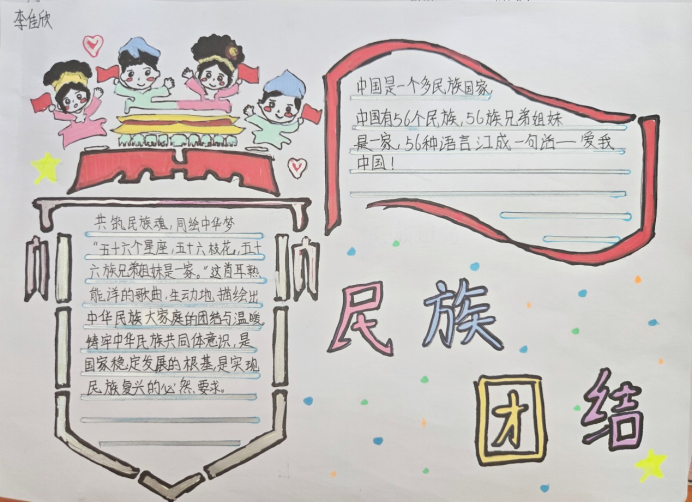 李佳欣
中国是一个多民族国家
中国有56个民族,56族兄弟姐妹
是一家,56种语言汇成一句话——爱我
中国!
共筑民族魂,同绘中华梦
“五十六个星座,五十六枝花,五十
六族兄弟姐妹是一家。”这首耳熟
能详的歌曲,生动地描绘出
中华民族大家庭的团结与温暖
铸牢中华民族共同体意识,是
国家稳定发展的根基,是实现
民族复兴的必然要求。
民族
团结